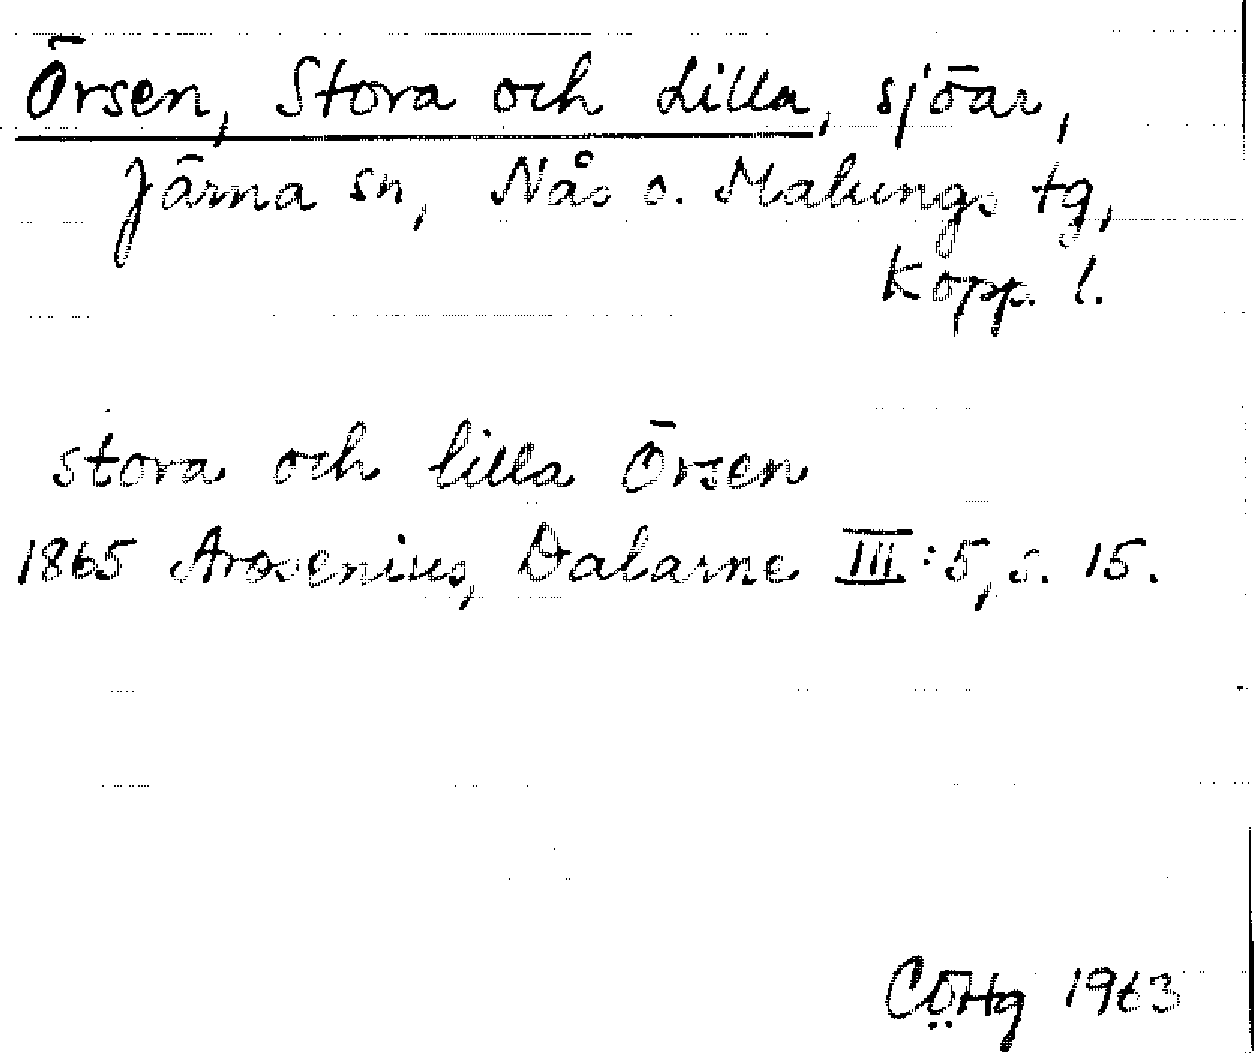 Örsen, Stora och Lilla, sjöar,
Järna sn, Nås o. Malungs tg,
Kopp. l.
stora och lilla Örsen
1865 Arosenius, Dalarne III:5, s. 15.
CÖHg 1963